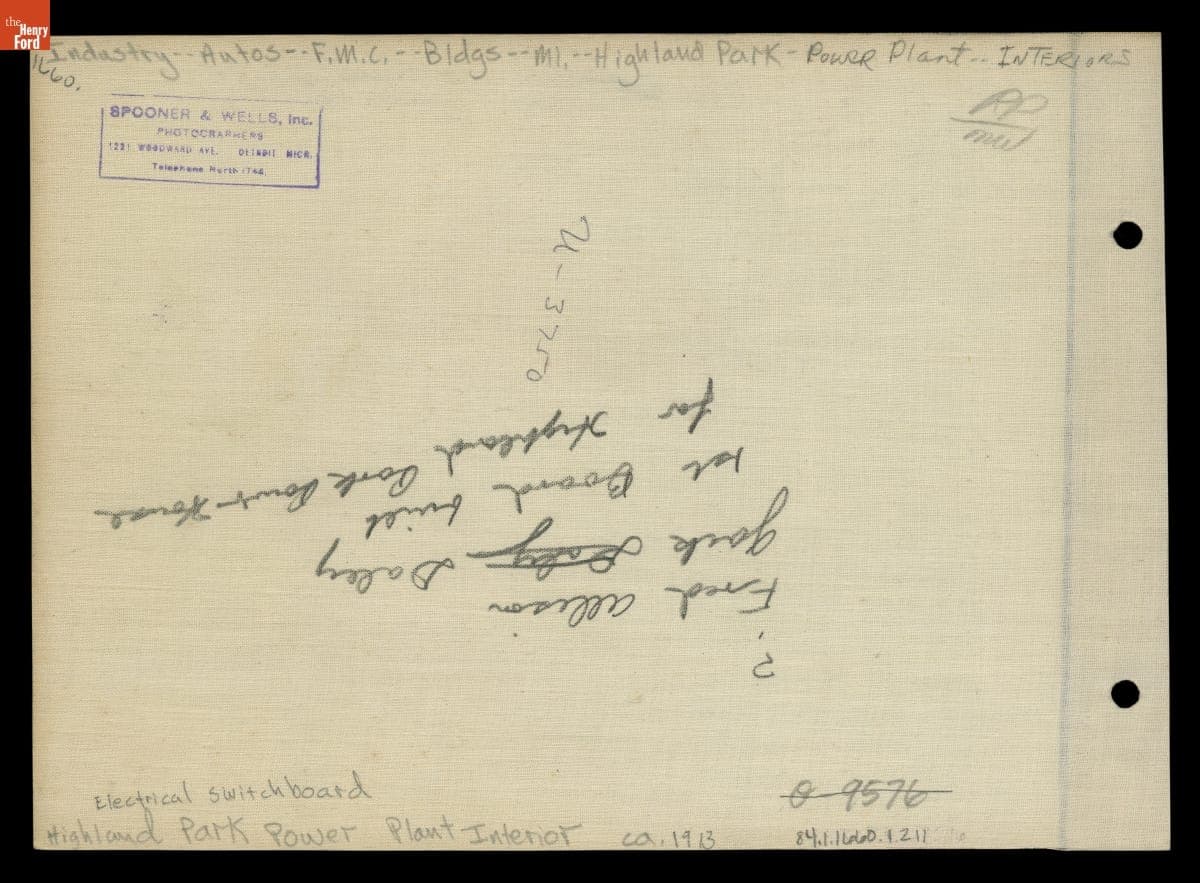 the Henry Ford
Industry--Autos--F.M.C.--Bldgs--MI.--Highland Park-Power Plant--INTERIORS
1660.
SPOONER & WELLS, Inc.
PHOTOGRAPHERS
1221 WOODWARD AVE. DETROIT MICH.
Telephone North 1744.
N-3750
?
Fred Allison
Jack Daley Daley
1st Board built
for Highland Park Power House
Electrical switchboard
Highland Park Power Plant Interior ca. 1913
O-9576
84.1.1660.1.211